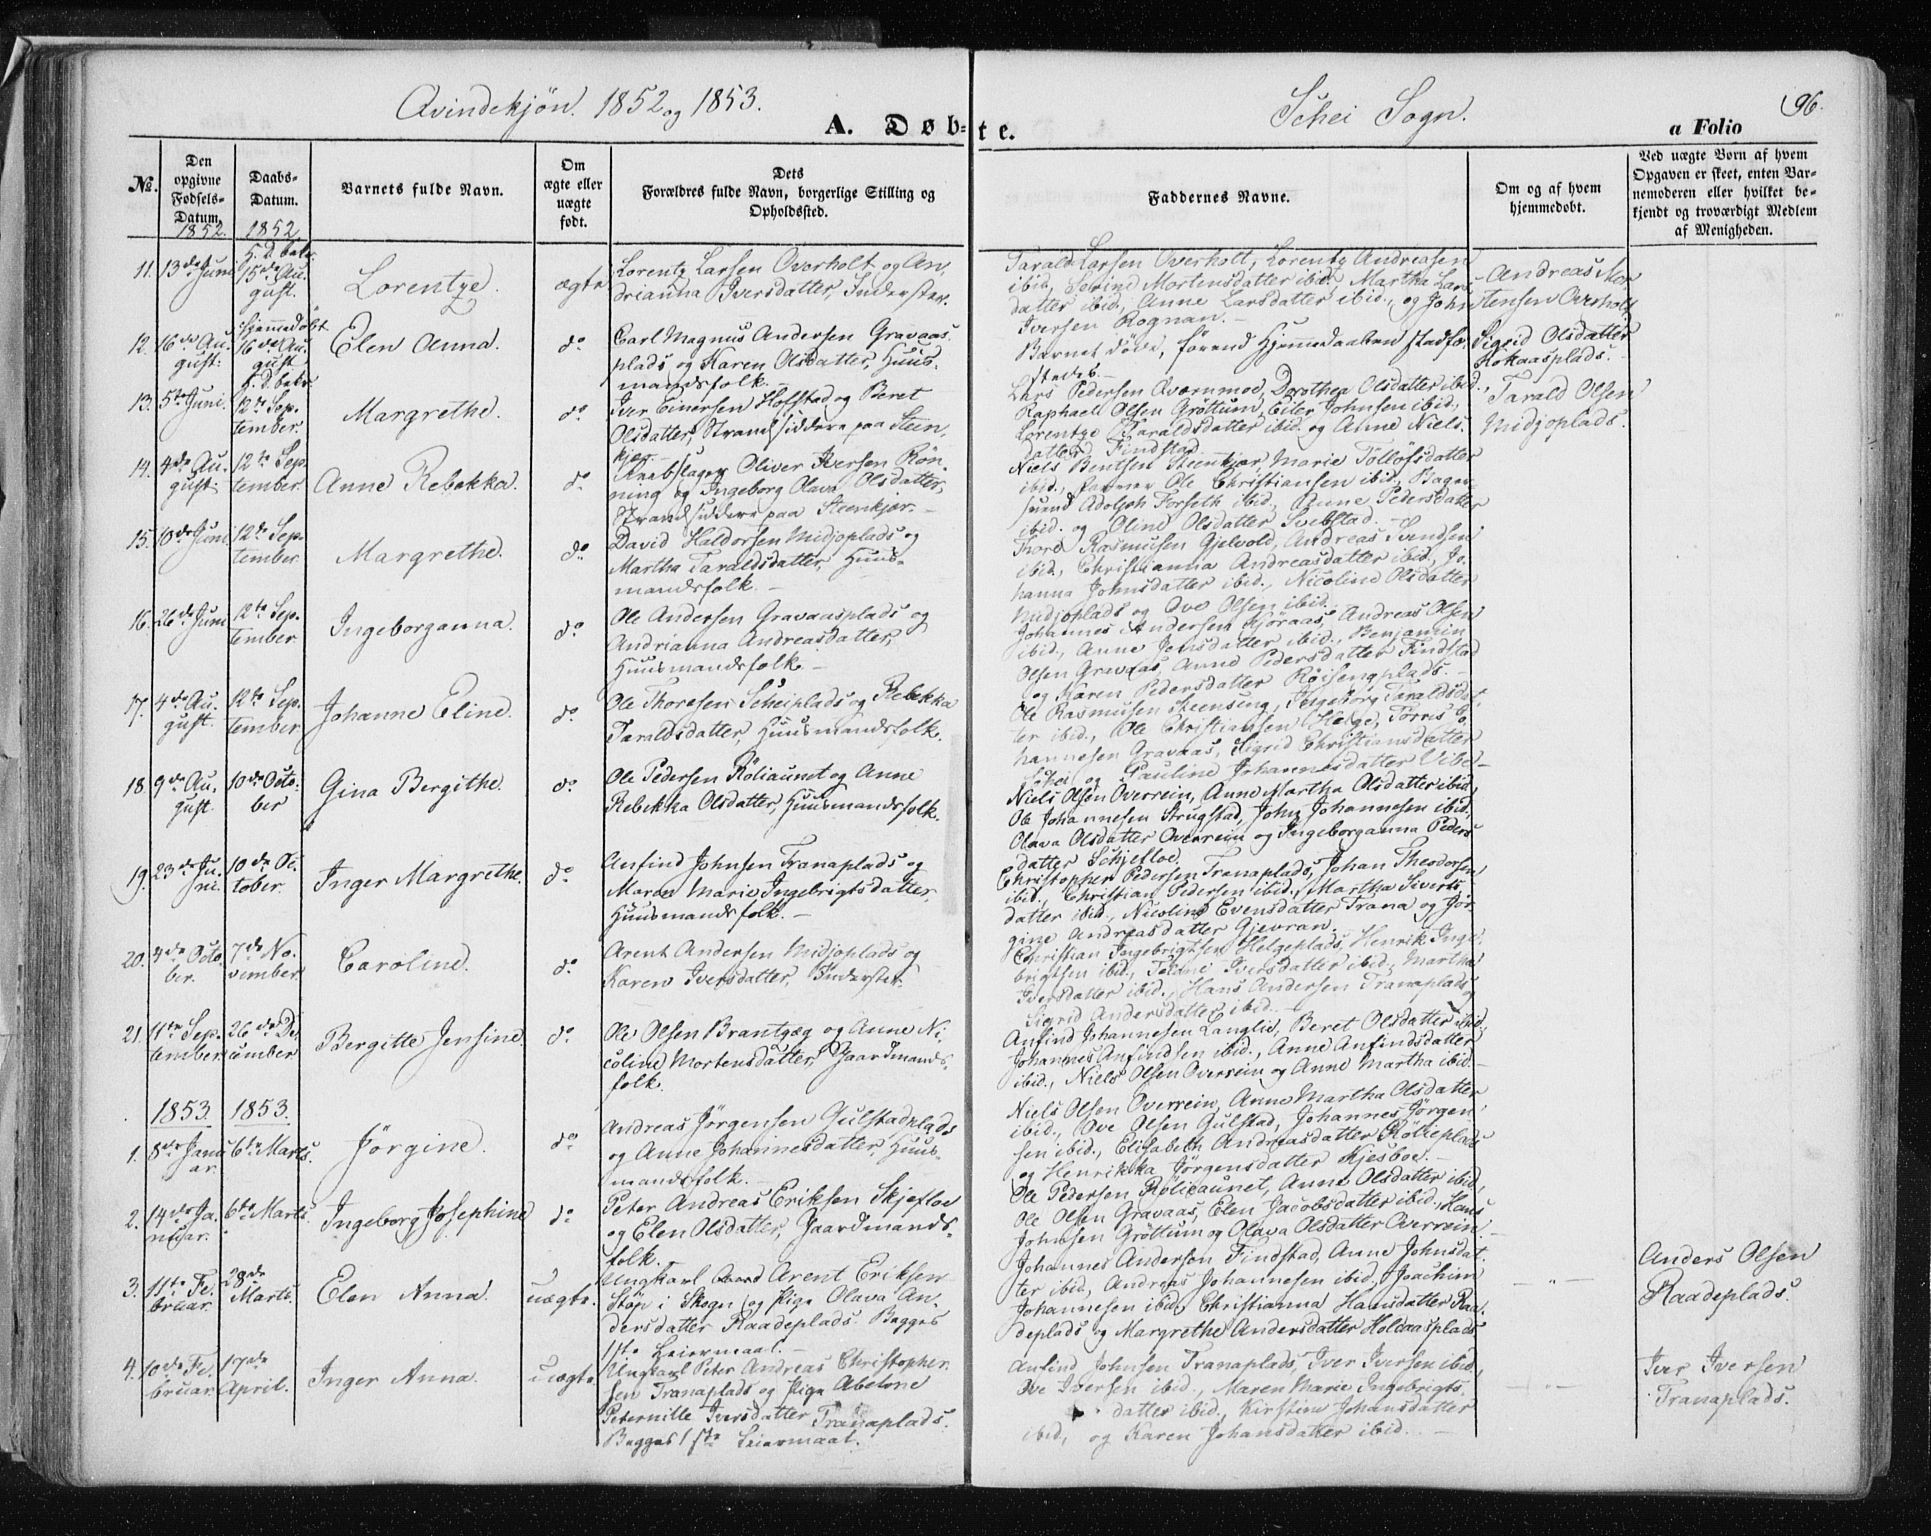 Qvindekjøn. 1852 og 1853.
Schei Sogn.
96.
A. Døb-
te.
a Folio
No.
Den opgivne Fødsels-Datum.
Daabs-Datum.
Barnets fulde Navn.
Om ægte eller uægte født.
Dets Forældres fulde Navn, borgerlige Stilling og Opholdssted.
Faddernes Navne.
Om og af hvem hjemmedøbt.
Ved uægte Børn af hvem Opgaven er skeet, enten Barnemoderen eller hvilket bekjendt og troværdigt Medlem af Menigheden.
1852.
1852
11. 13de Juni
H. D. bekr. 15de August.
Lorentze.
ægte
Lorentz Larsen Overholt og An-
drianna Iversdatter, Inderster.
Tarald Larsen Overholt, Lorentz Andreasen
ibid, Serine Mortensdatter ibid, Martha Lars-
datter ibid., Anne Larsdatter ibid., og John
Iversen Rognan.
Andreas Mor-
tensen Overholt
12. 16de August.
Hjemmedøbt 16de August
Elen Anna.
do
Carl Magnus Andersen Gravaas-
plads og Karen Olsdatter, Huus-
mandsfolk.
Barnet døde, førend Hjemmedaaben stadfæ-
stedes.
Sigrid Olsdatter
Hokaasplads.
13. 5te Juni.
H. D. bekr. 12te September.
Margrethe.
do
Iver Einersen Hofstad og Beret
Olsdatter, Strandsiddere paa Steen-
kjær.
Lars Pedersen Qvernmoe, Dorothea Olsdatter ibid.,
Raphael Olsen Grøttum, Eiler Johnsen ibid.,
Lorentze Taraldsdatter ibid og Anne Niels-
datter Findstad
Tarald Olsen
Midjoplads.
14. 4de August.
12te September
Anne Rebekka.
do
Rebslager Oliver Iversen Røn-
ning og Ingeborg Olava Olsdatter,
Strandsiddere paa Steenkjær.
Niels Bentsen Steenkjær, Marie Tolløfsdatter
ibid., Farver Ole Christiansen ibid., Bager-
svend Adolph Forseth ibid., Anne Pedersdatter
ibid. og Oline Olsdatter Svebstad.
15. 10de Juni
12te September
Margrethe.
do
David Haldorsen Midjoplads og
Martha Taraldsdatter, Huus-
mandsfolk.
Thore Rasmusen Gjelvold, Andreas Svendsen
ibid., Christianna Andreasdatter ibid., Jo-
hanna Johnsdatter ibid., Nicoline Olsdatter
Midjoplads og Ove Olsen ibid.
16. 26de Juni
12te September
Ingeborganna.
do
Ole Andersen Gravaasplads og
Andrianna Andreasdatter,
Huusmandsfolk.
Johannes Andersen Kjøraas, Andreas Olsen
ibid., Anne Jonsdatter ibid., Benjamin
Olsen Gravaas, Anne Pedersdatter Findstad
og Karen Pedersdatter Røisengplads.
17. 4de August.
12te September
Johanne Eline.
do
Ole Thoresen Scheiplads og Rebekka
Taraldsdatter, Huusmandsfolk.
Ole Rasmusen Steenseng, Ingeborg Taraldsdat-
ter ibid., Ole Christiansen Helge, Torris Jo-
hannesen Gravaas, Sigrid Christiansdatter
Schei og Pauline Johannesdatter Vibe-
18. 9de August
10de October
Gina Bergithe.
do
Ole Pedersen Røliaunet og Anne
Rebekka Olsdatter, Huusmandsfolk.
Niels Olsen Overrein, Anne Martha Olsdatter ibid,
Ole Johannesen Strugstad, John Johannesen ibid,
Olava Olsdatter Overrein og Ingeborganna Peders-
datter Schjefloe.
19. 23de Juni.
10de October.
Inger Margrethe.
do
Anfind Johnsen Tranaplads og
Maren Marie Ingebrigtsdatter,
Huusmandsfolk.
Christopher Pedersen Tranaplads, Johan Theodorsen
ibid, Christian Pedersen ibid., Martha Siverts-
datter ibid., Nicoline Evensdatter Trana og Jør-
gine Andreasdatter Gjevran.
20. 4de October.
7de November
Caroline.
do
Arent Andersen Midjoplads og
Karen Iversdatter, Inderster.
Christian Ingebrigtsen Helgeplads, Henrik Inge-
brigtsen ibid., Iversdatter ibid., Martha
Iversdatter ibid., Hans Andersen Tranaplads og
Sigrid Andersdatter ibid.
21. 11te September
26de December
Bergitte Jensine.
do
Ole Olsen Brantzæg og Anne Ni-
coline Mortensdatter, Gaardmands-
folk.
Anfind Johannesen Langlie, Beret Olsdatter ibid,
Johannes Anfindsen ibid., Anne Anfindsdatter
ibid., Niels Olsen Overrein og Anne Martha ibid.
1853. 1853.
1. 8de Januar.
6te Marts.
Jørgine.
do
Andreas Jørgensen Gulstadplads
og Anne Johannesdatter, Huus-
mandsfolk.
Niels Olsen Overrein, Anne Martha Olsdatter
ibid., Ove Olsen Gulstad, Johannes Jørgen-
sen ibid., Elisabeth Andreasdatter Røliеplads
og Henrikka Jørgensdatter Kjesboe.
2. 14de Januar.
6te Marts.
Ingeborg Josephine
do
Peter Andreas Eriksen Skjefloe
og Elen Olsdatter, Gaardmands-
folk.
Ole Pedersen Røliaunet, Anne Olsdatter ibid,
Ole Olsen Gravaas, Elen Jacobsdatter ibid., Hans
Johnsen Grøttum og Olava Olsdatter Overrein.
3. 11te Februar.
28de Marts.
Elen Anna.
uægte.
Ungkarl Arent Eriksen
Støp i Skogn og Pige Olava An-
dersdatter Raadeplads. Begges
1ste Leiermaal.
Johannes Andersen Findstad, Anne Johnsdat-
ter ibid, Andreas Johannesen ibid., Joachim
Johannesen ibid, Christianna Hansdatter Raa-
deplads og Margrethe Andersdatter Holdaasplads
— " —
Anders Olsen
Raadeplads.
4. 10de Februar
17de April.
Inger Anna.
uægte
Ungkarl Peter Andreas Christopher-
sen Tranaplads og Pige Abelone
Peternille Iversdatter Tranaplads.
Begges 1ste Leiermaal.
Anfind Johnsen Tranaplads, Iver Iversen ibid,
Ove Iversen ibid., Maren Marie Ingebrigts-
datter ibid, Kirstine Johansdatter
ibid, og Karen Johansdatter ibid.
— " —
Iver Iversen
Tranaplads.